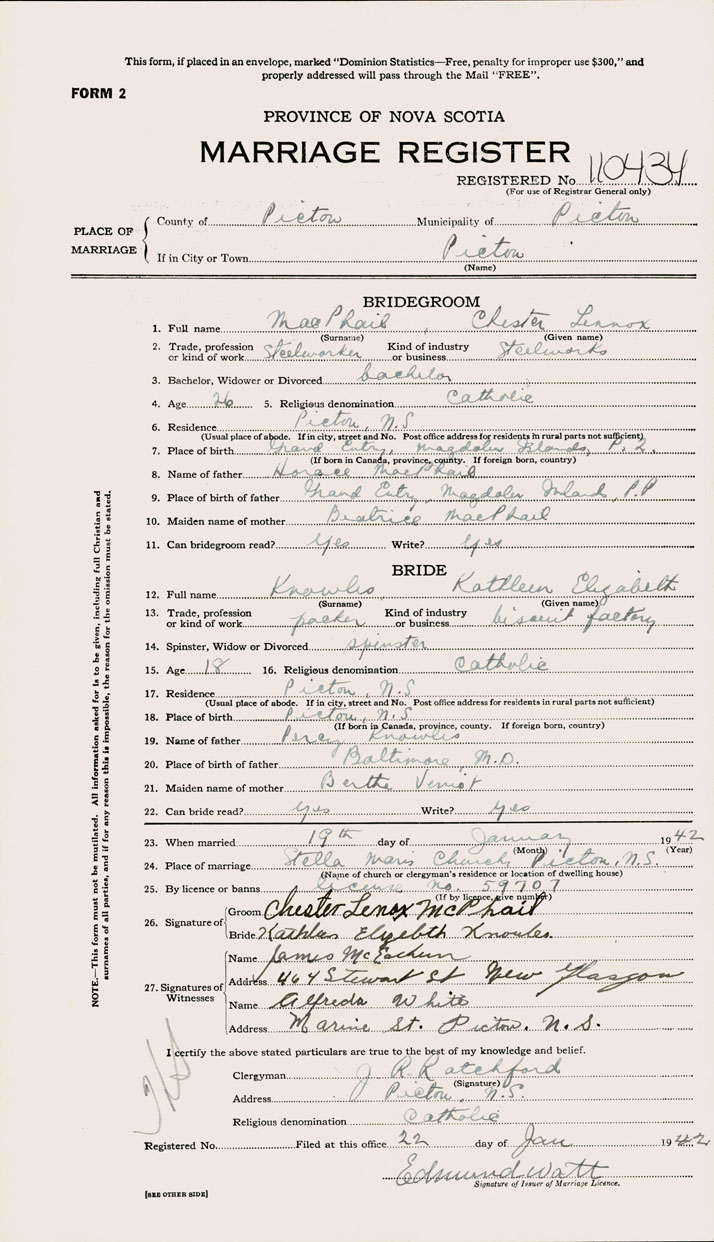 This form, if placed in an envelope, marked "Dominion Statistics—Free, penalty for improper use $300," and
properly addressed will pass through the Mail "FREE".
FORM 2
PROVINCE OF NOVA SCOTIA
MARRIAGE REGISTER
REGISTERED No. 110434
(For use of Registrar General only)
PLACE OF MARRIAGE
County of Pictou Municipality of Pictou
If in City or Town Pictou
(Name)
BRIDEGROOM
1. Full name MacPhail, Chester Lennox
(Surname) (Given name)
2. Trade, profession or kind of work Steelworker Kind of industry or business Steelworks
3. Bachelor, Widower or Divorced bachelor
4. Age 26 5. Religious denomination Catholic
6. Residence Pictou, N.S
(Usual place of abode. If in city, street and No. Post office address for residents in rural parts not sufficient)
7. Place of birth Grand Entry, Magdalen Islands, P.Q.
(If born in Canada, province, county. If foreign born, country)
8. Name of father Horace MacPhail
9. Place of birth of father Grand Entry, Magdalen Islands, P.P
10. Maiden name of mother Beatrice MacPhail
11. Can bridegroom read? Yes Write? Yes
BRIDE
12. Full name Knowles, Kathleen Elizabeth
(Surname) (Given name)
13. Trade, profession or kind of work packer Kind of industry or business biscuit factory
14. Spinster, Widow or Divorced spinster
15. Age 18 16. Religious denomination Catholic
17. Residence Pictou, N.S
(Usual place of abode. If in city, street and No. Post office address for residents in rural parts not sufficient)
18. Place of birth Pictou, N.S
(If born in Canada, province, county. If foreign born, country)
19. Name of father Percy Knowles
20. Place of birth of father Baltimore, M.D.
21. Maiden name of mother Bertha Veniot
22. Can bride read? Yes Write? Yes
23. When married 19th day of January 1942
(Month) (Year)
24. Place of marriage Stella Maris Church, Pictou, N.S.
(Name of church or clergyman's residence or location of dwelling house)
25. By licence or banns license no. 59707
(If by licence, give number)
26. Signature of
Groom Chester Lenox McPhail
Bride Kathleen Elizebth Knowles
27. Signatures of Witnesses
Name James McEachern
Address 464 Stewart St New Glasgow
Name Alfreda White
Address Marine St. Pictou. N.S.
I certify the above stated particulars are true to the best of my knowledge and belief.
Clergyman J R Ratchford
(Signature)
Address Pictou, N.S.
Religious denomination Catholic
Registered No. Filed at this office 22 day of Jan 1942
Edmund Watt
Signature of Issuer of Marriage Licence.
[SEE OTHER SIDE]
NOTE.—This form must not be mutilated. All information asked for is to be given, including full Christian and
surnames of all parties, and if for any reason this is impossible, the reason for the omission must be stated.